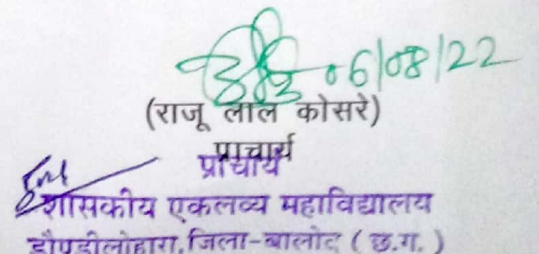 06/08/22
(राजू लाल कोसरे)
प्राचार्य
प्राचार्य
शासकीय एकलव्य महाविद्यालय
डौण्डीलोहारा, जिला-बालोद (छ.ग.)